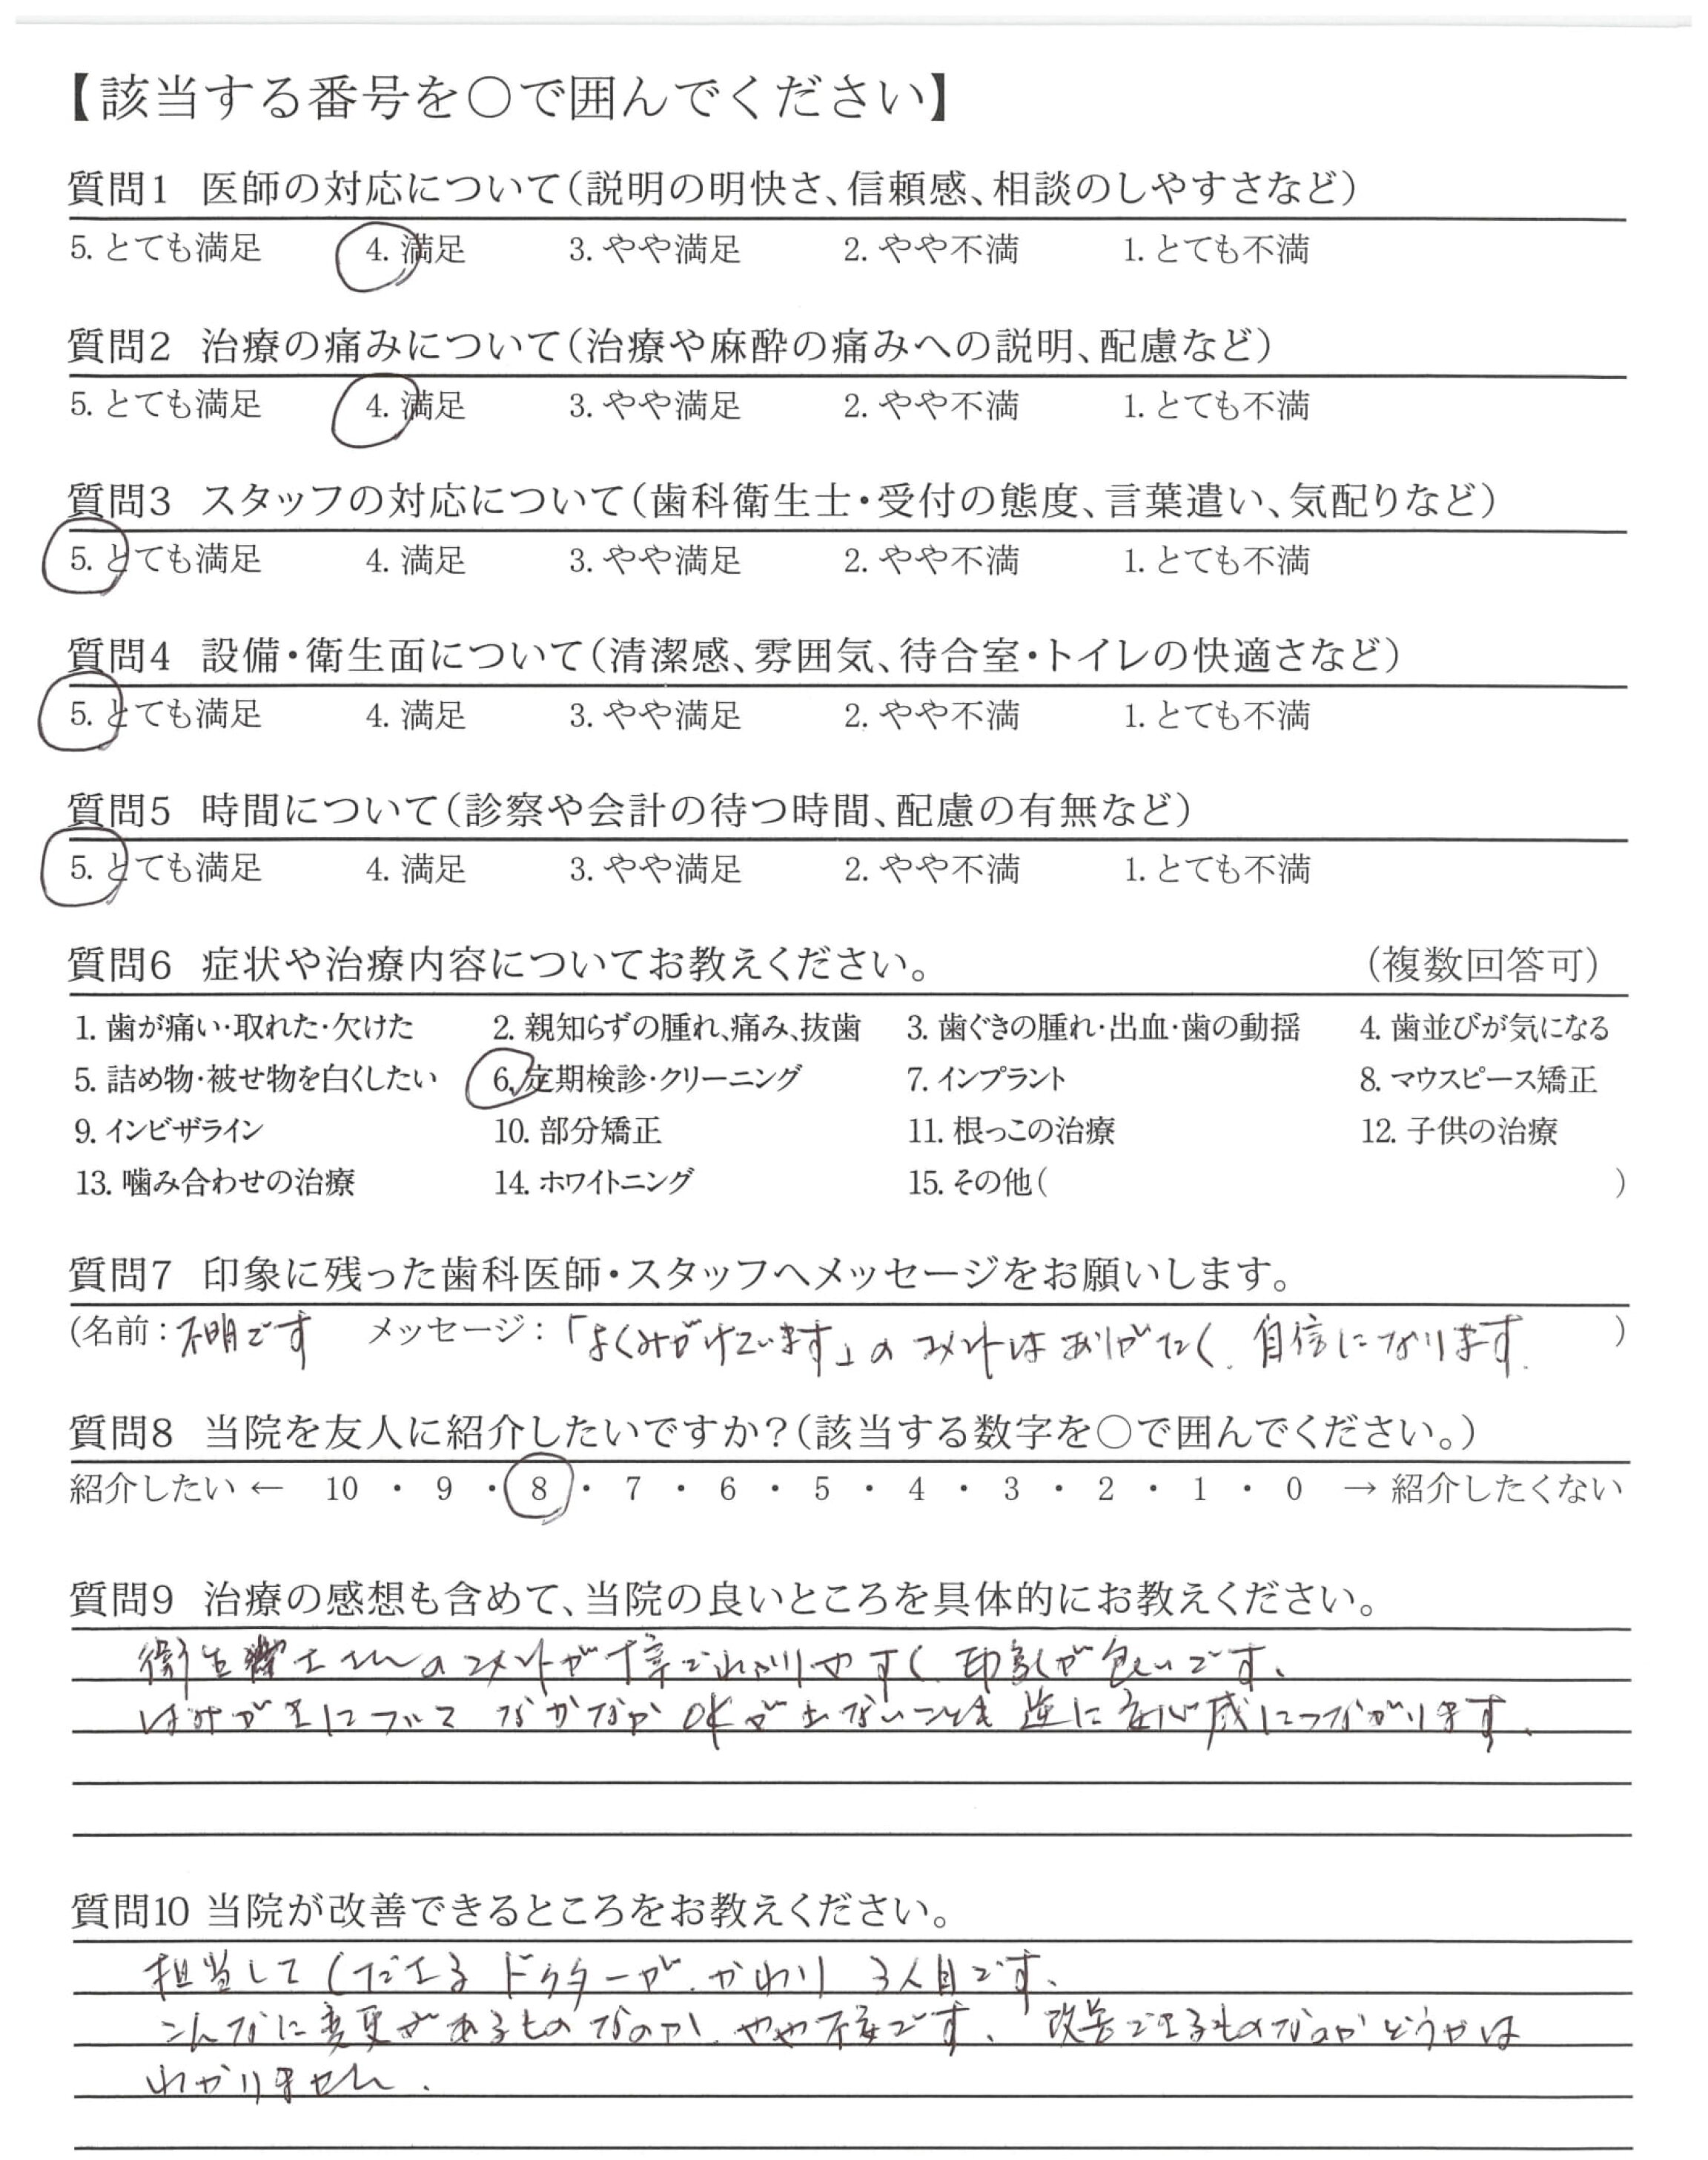 【該当する番号を〇で囲んでください】
質問1 医師の対応について（説明の明快さ、信頼感、相談のしやすさなど）
5. とても満足 4. 満足 3. やや満足 2. やや不満 1. とても不満
質問2 治療の痛みについて（治療や麻酔の痛みへの説明、配慮など）
5. とても満足 4. 満足 3. やや満足 2. やや不満 1. とても不満
質問3 スタッフの対応について（歯科衛生士・受付の態度、言葉遣い、気配りなど）
5. とても満足 4. 満足 3. やや満足 2. やや不満 1. とても不満
質問4 設備・衛生面について（清潔感、雰囲気、待合室・トイレの快適さなど）
5. とても満足 4. 満足 3. やや満足 2. やや不満 1. とても不満
質問5 時間について（診察や会計の待つ時間、配慮の有無など）
5. とても満足 4. 満足 3. やや満足 2. やや不満 1. とても不満
質問6 症状や治療内容についてお教えください。 （複数回答可）
1. 歯が痛い・取れた・欠けた 2. 親知らずの腫れ、痛み、抜歯 3. 歯ぐきの腫れ・出血・歯の動揺 4. 歯並びが気になる
5. 詰め物・被せ物を白くしたい 6. 定期検診・クリーニング 7. インプラント 8. マウスピース矯正
9. インビザライン 10. 部分矯正 11. 根っこの治療 12. 子供の治療
13. 噛み合わせの治療 14. ホワイトニング 15. その他（ ）
質問7 印象に残った歯科医師・スタッフへメッセージをお願いします。
（名前：不明です メッセージ：「よくみがけています」のコメントはありがたく、自信になります。）
質問8 当院を友人に紹介したいですか？（該当する数字を〇で囲んでください。）
紹介したい ← 10 ・ 9 ・ 8 ・ 7 ・ 6 ・ 5 ・ 4 ・ 3 ・ 2 ・ 1 ・ 0 → 紹介したくない
質問9 治療の感想も含めて、当院の良いところを具体的にお教えください。
衛生士さんのコメントが丁寧でわかりやすく、印象が良いです。
はみがきについて なかなかOKが出ないことも 逆に安心感につながります。
質問10 当院が改善できるところをお教えください。
担当してくださる ドクターが、かわり 3人目です。
こんなに変更があるものなのか、やや不安です。 改善できるものなのかどうかは
わかりません。